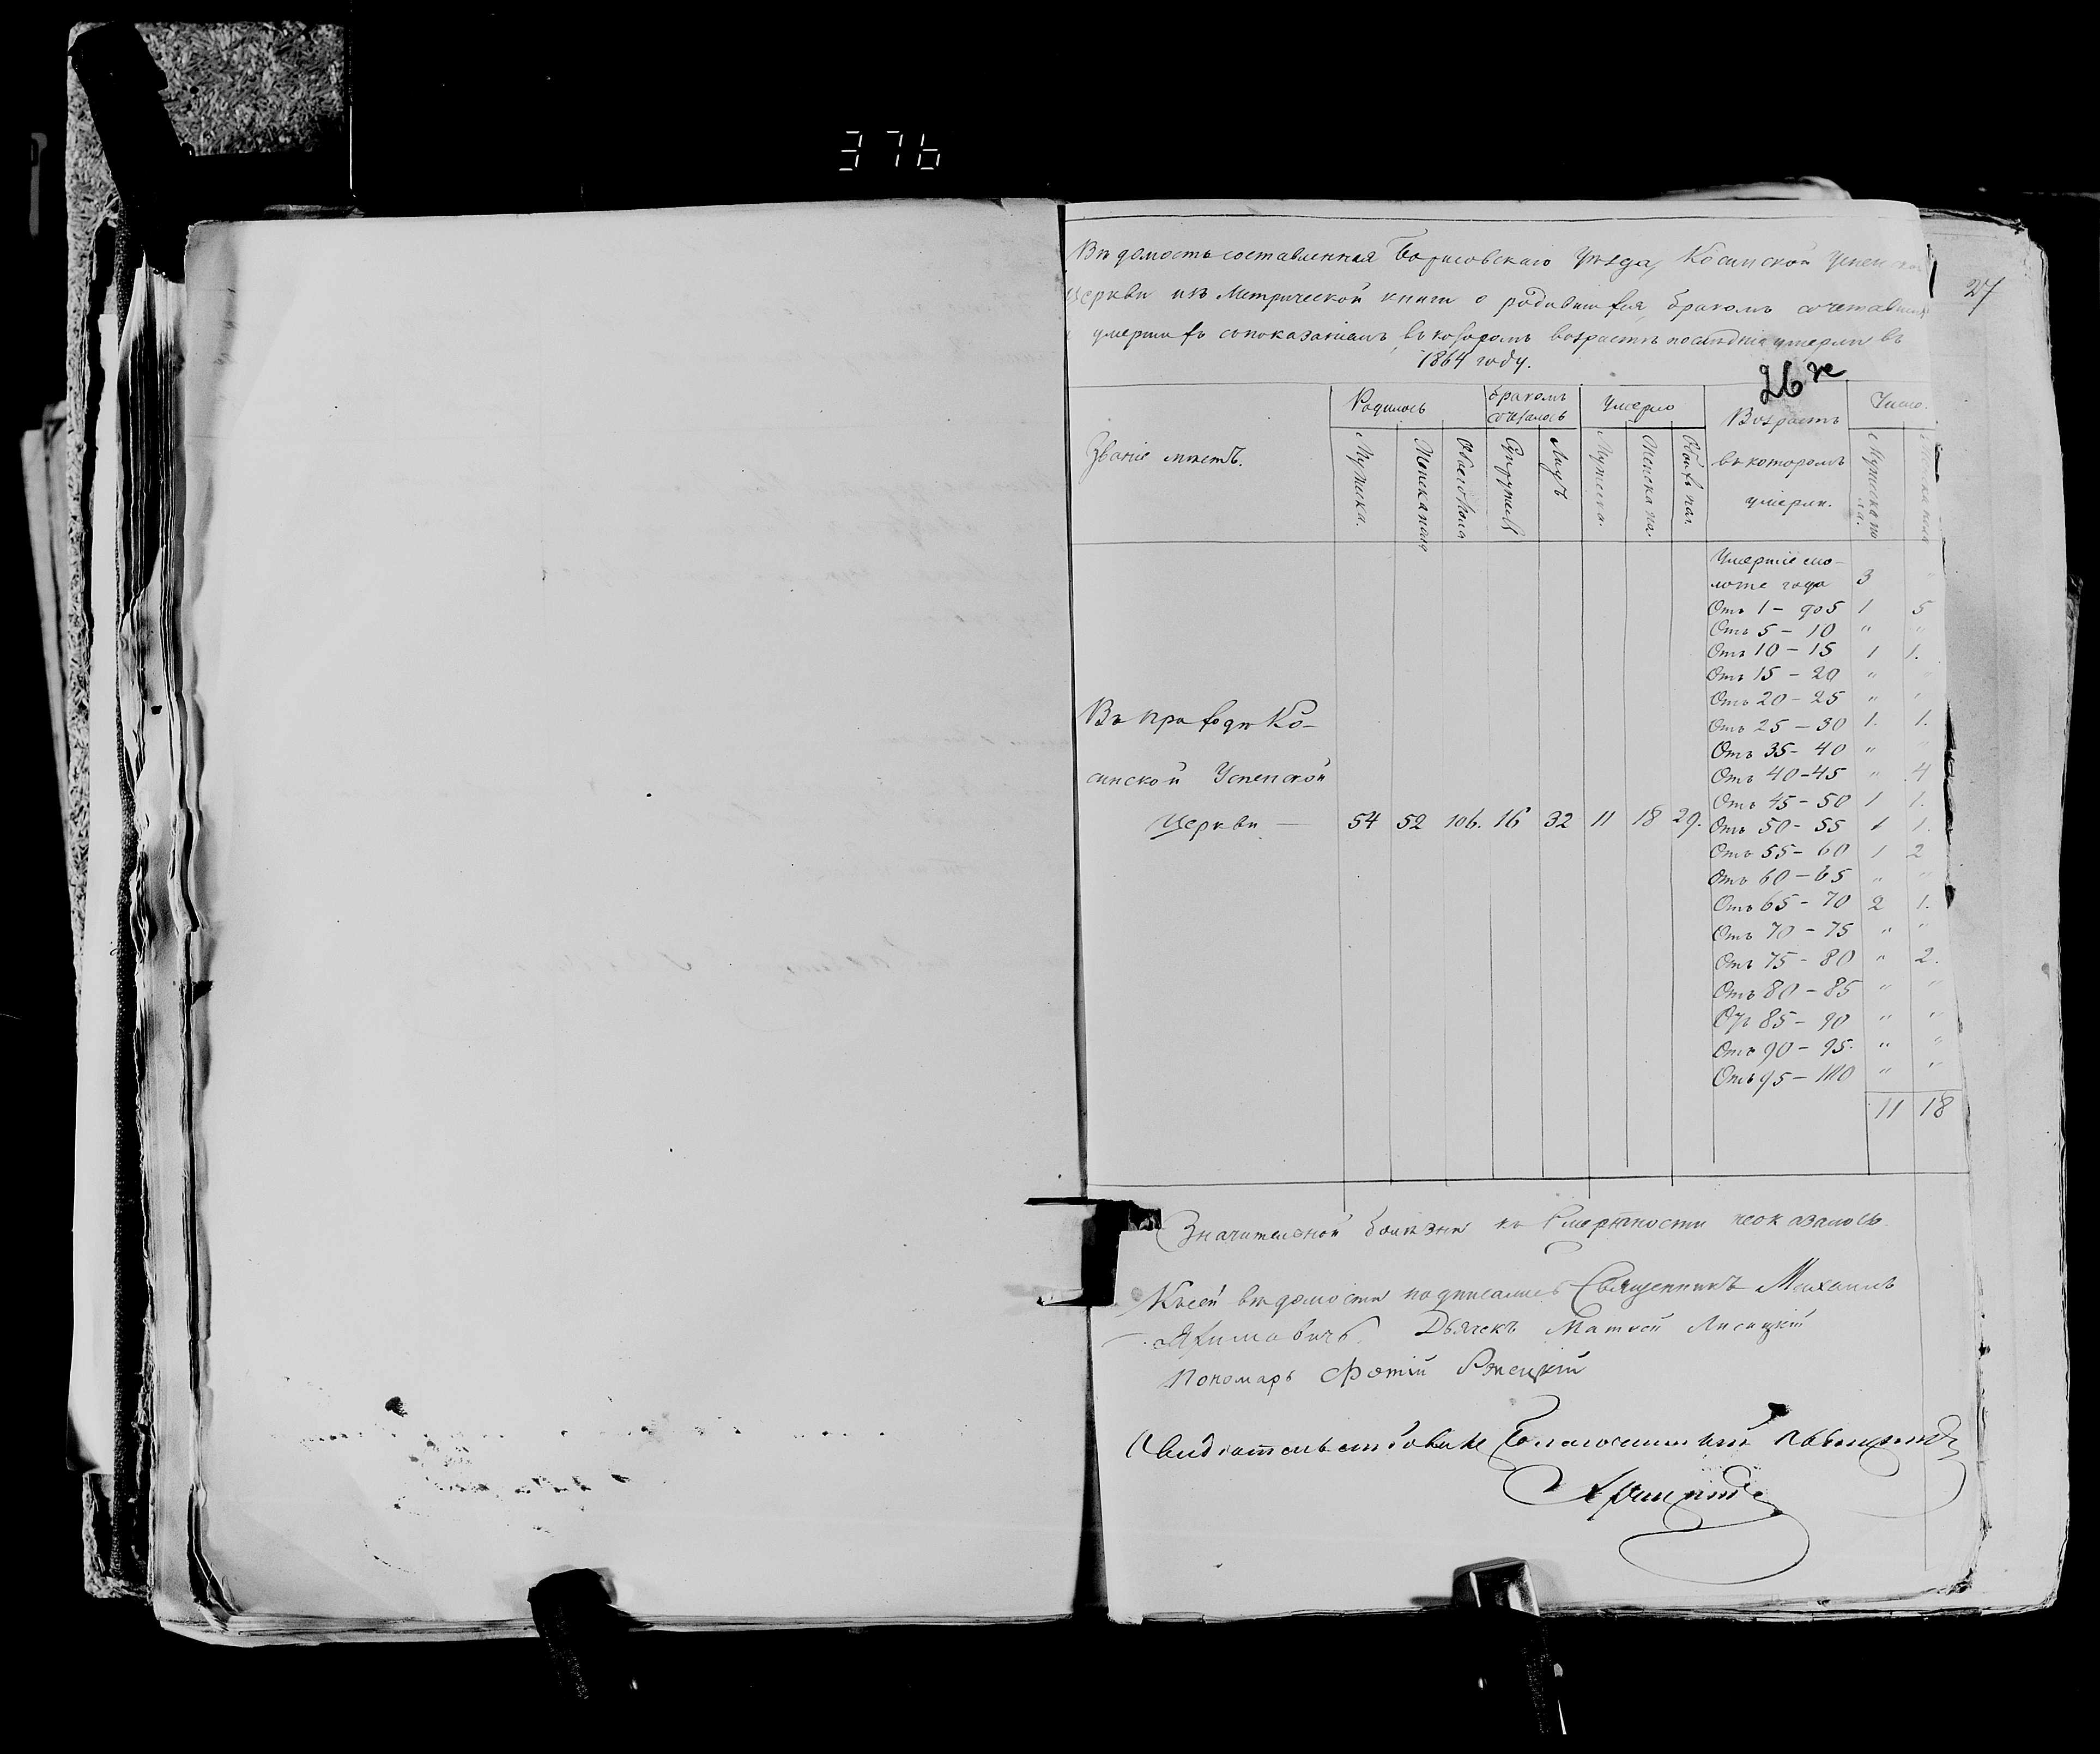 376
27
Вѣдомость составленная Борисовскаго уѣзда, Косинской Успенской
Церкви изъ Метрической книги о родившихся, бракомъ сочетавшихся
умершихъ съ показаніемъ, въ которомъ возрастѣ послѣдніе умерли въ
1864 году.
26 че
Званіе мѣстъ.
Родилось
Бракомъ сочеталось
Умерло
Возрастъ въ которомъ умерли.
Число.
Мужеска.
Женска пола
Обоего пола
Супружеств
Лицъ
Мужеска.
Женска по.
Обоихъ пол.
Мужеска пола.
Женска пола
Умершіе мо-
ложе года 3 "
Отъ 1 - до 5 1 5
Отъ 5 - 10 " "
Отъ 10 - 15 1 1.
Отъ 15 - 20 " "
Отъ 20 - 25 " "
Отъ 25 - 30 1. 1.
Отъ 35 - 40 " "
Отъ 40 - 45 " 4
Отъ 45 - 50 1 1.
Отъ 50 - 55 1 1.
Отъ 55 - 60 1 2
Отъ 60 - 65 " "
Отъ 65 - 70 2 1.
Отъ 70 - 75 " "
Отъ 75 - 80 " 2.
Отъ 80 - 85 " "
Отъ 85 - 90 " "
Отъ 90 - 95. " "
Отъ 95 - 100 " "
11 18
Въ приходѣ Ко-
синской Успенской
Церкви — 54 52 106. 16 32 11 18 29.
Значительной болѣзни къ смертности неоказалось
Къ сей вѣдомости подписались Священникъ Михаилъ
Якимовичъ. Дьячекъ Матѳей Лисицкій
Пономарь Фотій
Свидѣтельствовалъ Благочинный